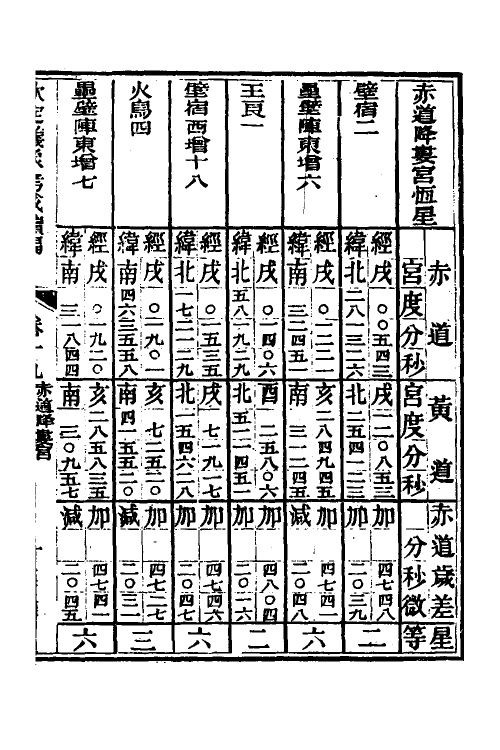 赤道降婁宮恆星
赤道
宮度分秒
黃道
宮度分秒
赤道歲差
分秒微
星等
壁宿二
經戌〇〇五四三
戌一二〇八五三
加四七四八
緯北二八一三二六
北二五四一二三
加二〇三九
二
壘壁陣東增六
經戌〇一二二一
亥二八四九四五
加四七四二
緯南三二四五一
南三一二四五
減二〇四八
六
王良一
經戌〇一四〇六
酉二五八〇六
加四八〇四
緯北五八一九二九
北五一二四五一
加二〇一六
二
壁宿西增十八
經戌〇一五三五
戌七一九一七
加四七四六
緯北一七二一二九
北一五四六二八
加二〇四七
六
火鳥四
經戌〇一九〇一
亥一七二五二〇
加四七二七
緯南四六三五五八
南四一五五二〇
減二〇三一
三
壘壁陣東增七
經戌〇一九二〇
亥二八五八三五
加四七四二
緯南三一八四四
南三〇九五七
減二〇四五
六
欽定儀象考成續編
卷十九
赤道降婁宮